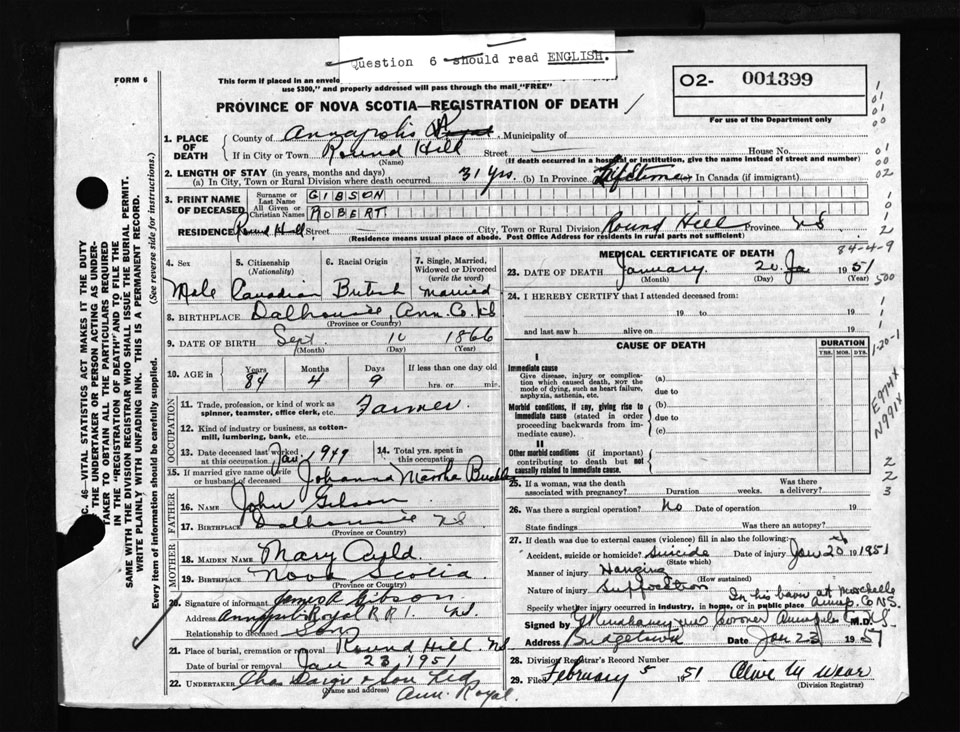 Question 6 should read ENGLISH.
FORM 6
This form if placed in an envelo
use $300," and properly addressed will pass through the mail "FREE"
O2- 001399
For use of the Department only
PROVINCE OF NOVA SCOTIA—REGISTRATION OF DEATH
1. PLACE OF DEATH
County of Annapolis Municipality of
If in City or Town Round Hill Street House No.
(Name) (If death occurred in a hospital or institution, give the name instead of street and number)
2. LENGTH OF STAY (in years, months and days)
(a) In City, Town or Rural Division where death occurred 31 yrs. (b) In Province Lifetime In Canada (if immigrant)
3. PRINT NAME OF DECEASED
Surname or Last Name GIBSON
All Given or Christian Names ROBERT
RESIDENCE Round Hill Street — City, Town or Rural Division Round Hill Province NS
(Residence means usual place of abode. Post Office Address for residents in rural parts not sufficient)
4. Sex 5. Citizenship (Nationality) 6. Racial Origin 7. Single, Married, Widowed or Divorced (write the word)
Male Canadian British Married
8. BIRTHPLACE Dalhousie Ann. Co. NS
(Province or Country)
9. DATE OF BIRTH Sept 10 1866
(Month) (Day) (Year)
10. AGE in Years Months Days If less than one day old
84 4 9 hrs. or min.
OCCUPATION
11. Trade, profession, or kind of work as spinner, teamster, office clerk, etc. Farmer
12. Kind of industry or business, as cotton-mill, lumbering, bank, etc.
13. Date deceased last worked at this occupation Jan 1949 14. Total yrs. spent in this occupation
15. If married give name of wife or husband of deceased Johanna Martha
FATHER
16. NAME John Gibson
17. BIRTHPLACE Dalhousie NS
(Province or Country)
MOTHER
18. MAIDEN NAME Mary Auld
19. BIRTHPLACE Nova Scotia
(Province or Country)
20. Signature of informant James R Gibson
Address Annapolis Royal R R 1. NS
Relationship to deceased Son
21. Place of burial, cremation or removal Round Hill NS
Date of burial or removal Jan 23 1951
22. UNDERTAKER & Son Ltd
(Name and address) Ann. Royal.
84-4-9
MEDICAL CERTIFICATE OF DEATH
23. DATE OF DEATH January 20 1951
(Month) (Day) (Year)
24. I HEREBY CERTIFY that I attended deceased from:
19 to 19
and last saw h alive on 19
CAUSE OF DEATH DURATION
YRS. MOS. DYS.
I
Immediate cause
Give disease, injury or complication which caused death, NOT the mode of dying, such as heart failure, asphyxia, asthenia, etc.
(a)
due to
Morbid conditions, if any, giving rise to immediate cause (stated in order proceeding backwards from immediate cause).
(b)
due to
(c)
II
Other morbid conditions (if important) contributing to death but not causally related to immediate cause.
25. If a woman, was the death associated with pregnancy? Duration weeks. Was there a delivery?
26. Was there surgical operation? No Date of operation 19
State findings Was there an autopsy?
27. If death was due to external causes (violence) fill in also the following:
Accident, suicide or homicide? Suicide Date of injury Jan 20 1951
(State which)
Manner of injury Hanging
(How sustained)
Nature of injury Suffocation
In his barn at Moschelle Annap. Co NS.
Specify whether injury occurred in industry, in home, or in public place
Signed by Coroner Annapolis Co. M.D.
Address Bridgetown Date Jan 23 1951
28. Division Registrar's Record Number
29. Filed February 5 1951 Olive M Wear
(Division Registrar)
1
01
01
00
01
00
02
1
01
2
500
1
1
1
1-20-1
E974X
N991X
2
2
3
C. 46—VITAL STATISTICS ACT MAKES IT THE DUTY
THE UNDERTAKER OR PERSON ACTING AS UNDER-
TAKER TO OBTAIN ALL THE PARTICULARS REQUIRED
IN THE "REGISTRATION OF DEATH" AND TO FILE THE
SAME WITH THE DIVISION REGISTRAR WHO SHALL ISSUE THE BURIAL PERMIT.
WRITE PLAINLY WITH UNFADING INK. THIS IS A PERMANENT RECORD.
Every item of information should be carefully supplied. (See reverse side for instructions.)